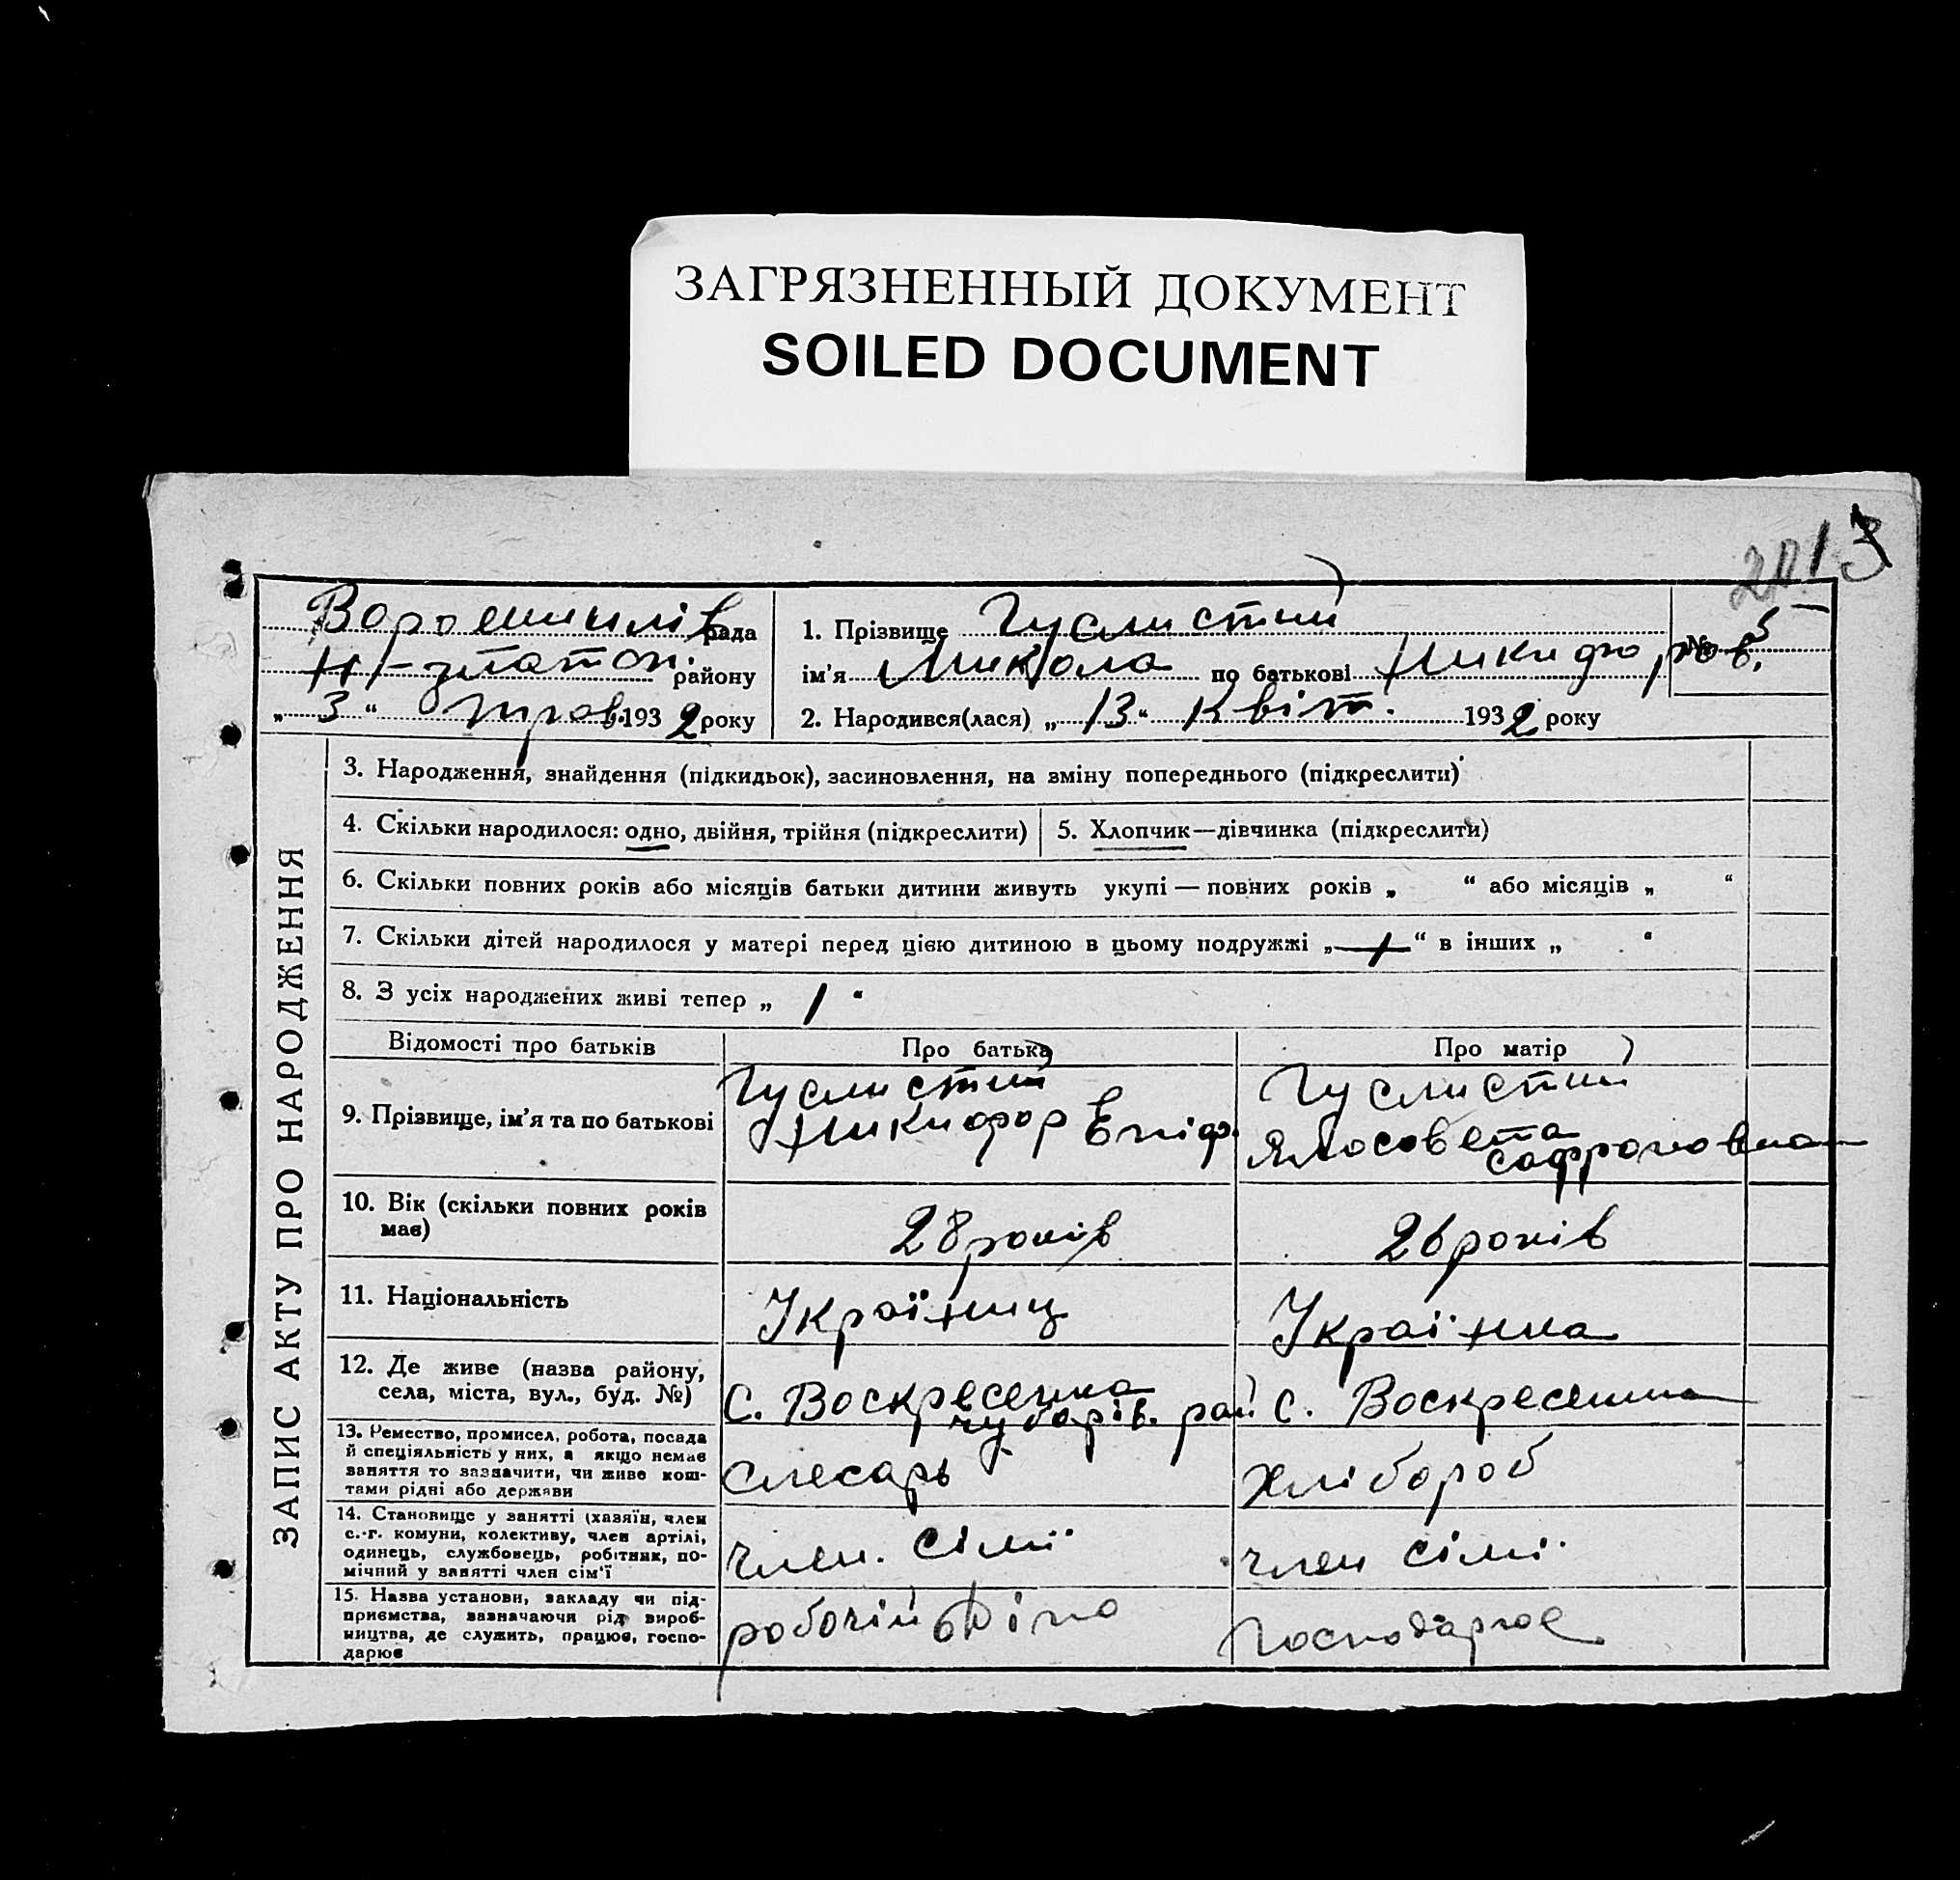 ЗАГРЯЗНЕННЫЙ ДОКУМЕНТ
SOILED DOCUMENT
13
Ворошилів рада
Н-златоп. району
„ 3 “ Трав. 1932 року
1. Прізвище Гуслистий
№ 5
ім'я Микола по батькові Никифоров.
2. Народився(лася) „ 13 “ Квіт. 1932 року
ЗАПИС АКТУ ПРО НАРОДЖЕННЯ
3. Народження, знайдення (підкидьок), засиновлення, на зміну попереднього (підкреслити)
4. Скільки народилося: одно, двійня, трійня (підкреслити)
5. Хлопчик—дівчинка (підкреслити)
6. Скільки повних років або місяців батьки дитини живуть укупі — повних років „ “ або місяців „ “
7. Скільки дітей народилося у матері перед цією дитиною в цьому подружжі „ 1 “ в інших „ “
8. З усіх народжених живі тепер „ 1 “
Відомості про батьків
Про батька
Про матір
9. Прізвище, ім'я та по батькові
Гуслистий
Никифор Епіф.
Гуслистий
Сафроновна
10. Вік (скільки повних років
має)
28 років
26 років
11. Національність
Україниц
Українка
12. Де живе (назва району,
села, міста, вул., буд. №)
С. Воскресенка
Чубарів. рай
с. Воскресенка
13. Ремество, промисел, робота, посада
й спеціяльність у них, а якщо немає
заняття то зазначити, чи живе кош-
тами рідні або держави
слесарь
хлібороб
14. Становище у занятті (хазяїн, член
с.-г. комуни, колективу, член артілі,
одинець, службовець, робітник, по-
мічний у занятті член сім'ї
член. сімї
член сімї
15. Назва установи, закладу чи під-
приємства, зазначаючи рід вироб-
ництва, де служить, працює, госпо-
дарює
робочій Діпо
Господарює